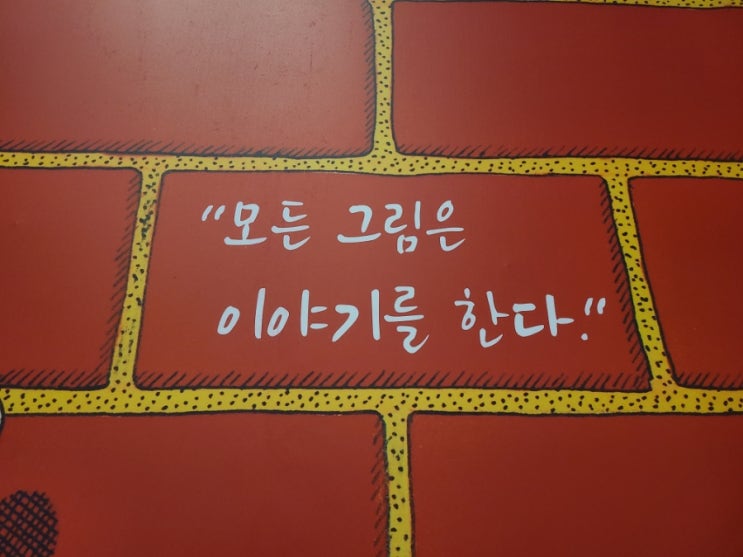 "모든 그림은
이야기를 한다."